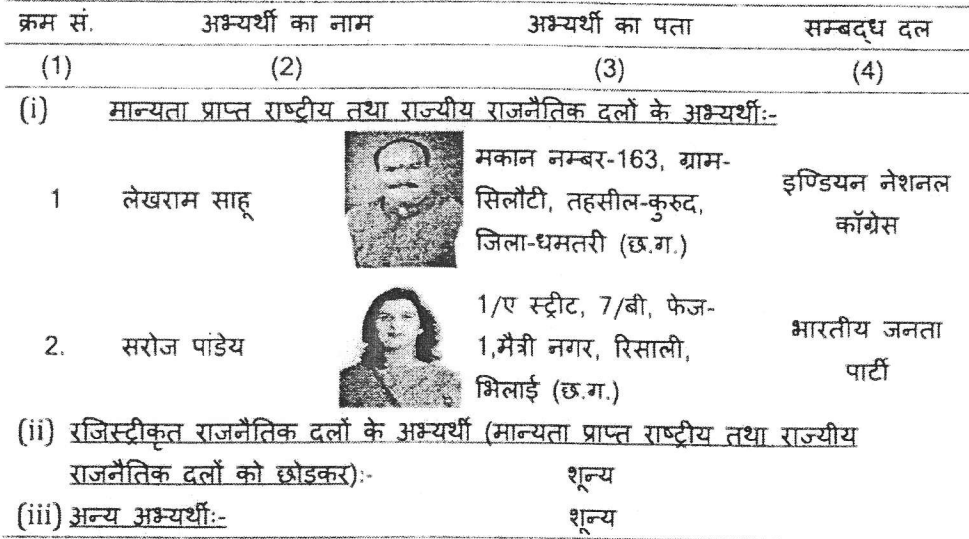 क्रम सं. अभ्यर्थी का नाम अभ्यर्थी का पता सम्बद्ध दल
(1) (2) (3) (4)
(i) मान्यता प्राप्त राष्ट्रीय तथा राज्यीय राजनैतिक दलों के अभ्यर्थीः-
1 लेखराम साहू
मकान नम्बर-163, ग्राम-
सिलौटी, तहसील-कुरुद,
जिला-धमतरी (छ.ग.)
इण्डियन नेशनल
कॉग्रेस
2. सरोज पांडेय
1/ए स्ट्रीट, 7/बी, फेज-
1,मैत्री नगर, रिसाली,
भिलाई (छ.ग.)
भारतीय जनता
पार्टी
(ii) रजिस्ट्रीकृत राजनैतिक दलों के अभ्यर्थी (मान्यता प्राप्त राष्ट्रीय तथा राज्यीय
राजनैतिक दलों को छोडकर):- शून्य
(iii) अन्य अभ्यर्थीः- शून्य